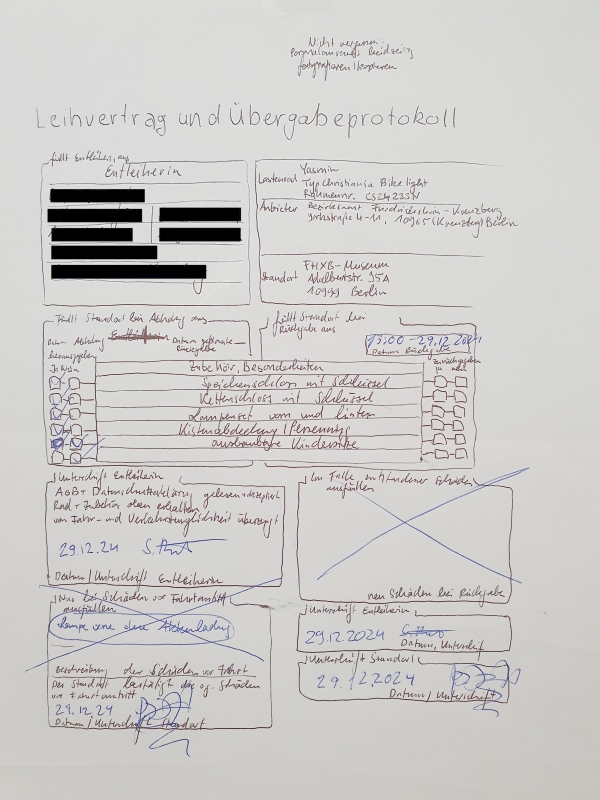 Nicht vergessen:
Personalausweis beidseitig
fotografieren/kopieren
Leihvertrag und Übergabeprotokoll
füllt Entleiherin aus
Entleiherin
Lastenrad Yasmin
Typ Christiania Bike light
Rahmennr. CS24233N
Anbieter Bezirksamt Friedrichshain-Kreuzberg
Yorckstraße 4-11, 10965 (Kreuzberg) Berlin
Standort FHXB-Museum
Adalbertstr. 95A
10999 Berlin
füllt Standort bei Abholung aus
Datum Abholung Entleiherin Datum geplante
Rückgabe
herausgegeben
Ja Nein
füllt Standort bei
Rückgabe aus
13:00-29.12.2024
Datum Rückgabe
zurückgegeben
ja nein
Zubehör, Besonderheiten
Speichenschloss mit Schlüssel
Kettenschloss mit Schlüssel
Lampenset vorn und hinten
Kistenabdeckung/Persenning
ausbaubare Kindersitze
Unterschrift Entleiherin
AGB + Datenschutzerklärung gelesen + akzeptiert
Rad + Zubehör oben erhalten
von Fahr- und Verkehrstauglichkeit überzeugt
29.12.24
Datum/Unterschrift Entleiherin
Im Falle entstandener Schäden
ausfüllen
neue Schäden bei Rückgabe
Nur bei Schäden vor Fahrtantritt
ausfüllen
Lampe vorne ohne
Beschreibung der Schäden vor Fahrt
Der Standort bestätigt die og. Schäden
vor Fahrtantritt
29.12.24
Datum/Unterschrift Standort
Unterschrift Entleiherin
29.12.2024
Datum, Unterschrift
Unterschrift Standort
29.12.2024
Datum/Unterschrift